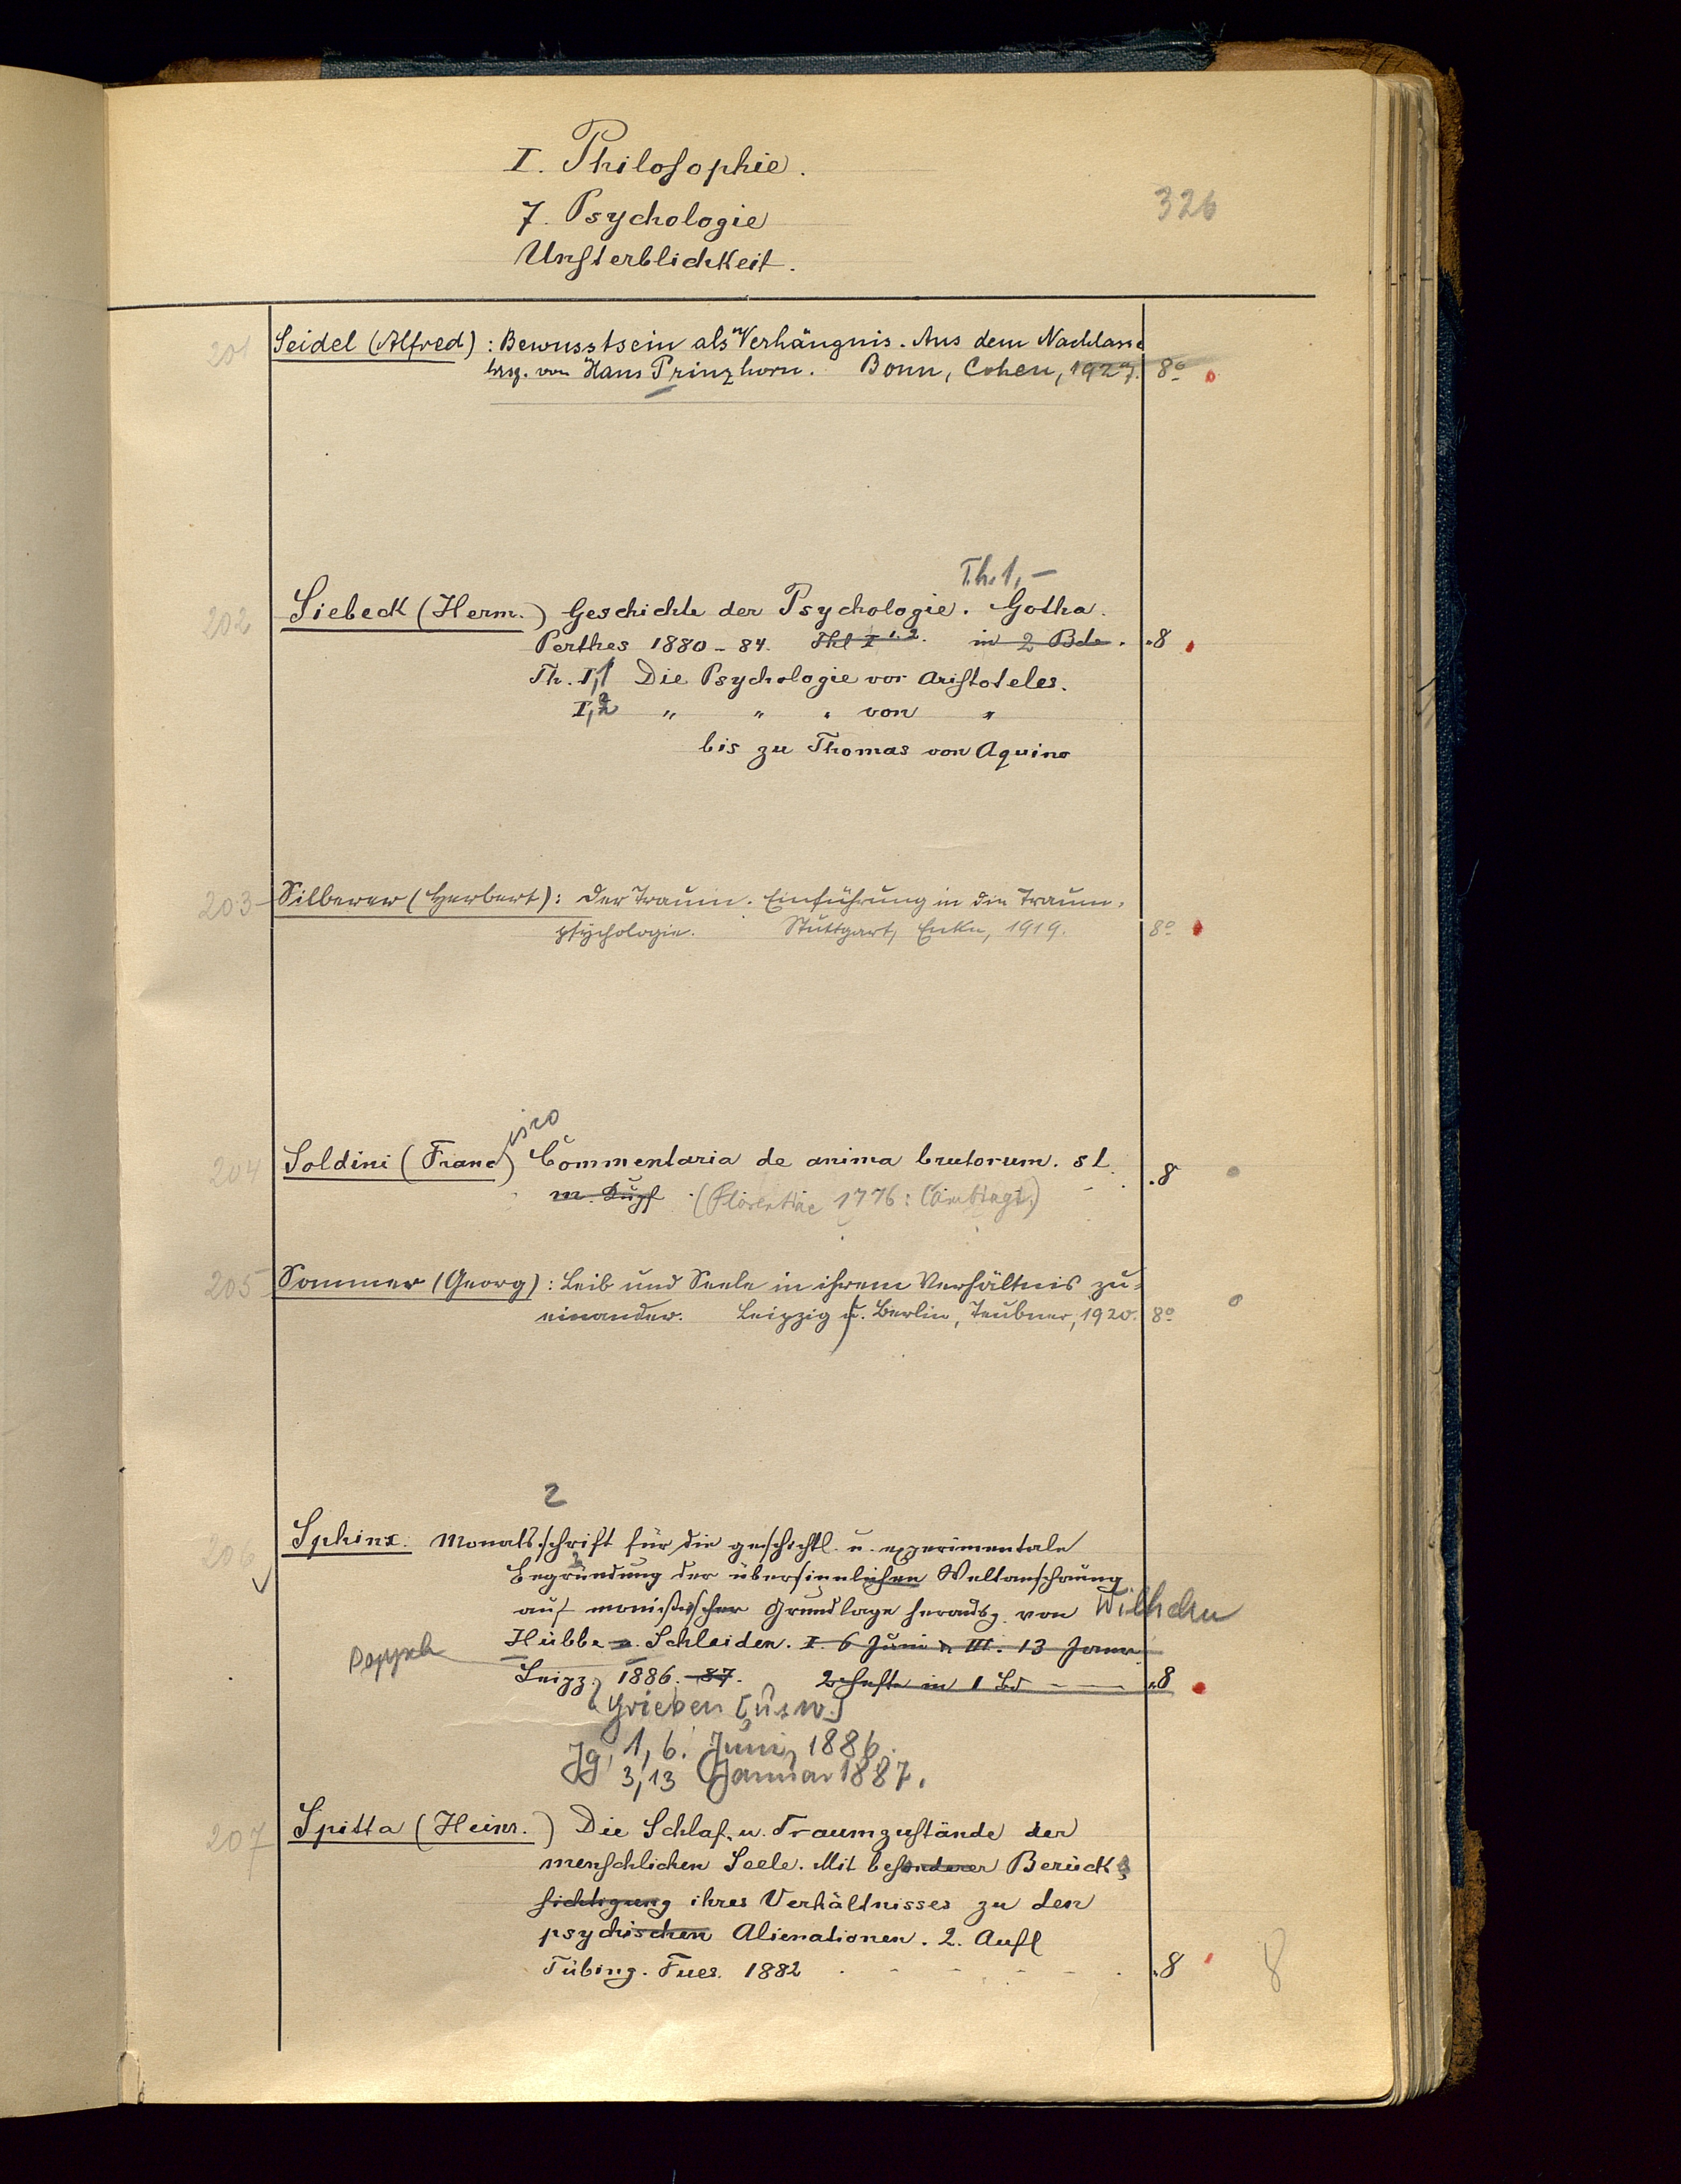 I. Philosophie.
326
7. Psychologie
Unsterblichkeit.
201 Seidel (Alfred): Bewusstsein als Verhängnis. Aus dem Nachlasse
hrsg. von Hans Prinzhorn. Bonn, Cohen, 1927. 8º
Th. 1,-
202 Siebeck (Herm.) Geschichte der Psychologie. Gotha.
Perthes 1880-84. Thl I 1.2. in 2 Bde. .8
Th. I,1 Die Psychologie vor Aristoteles.
I,2 " " " von "
bis zu Thomas von Aquino
203 Silberer (Herbert): Der Traum. Einführung in die Traum-
psychologie. Stuttgart, Enke, 1919. 8º
isco
204 Soldini (Franc) Commentaria de anima brutorum. s l.
m. Kupf. (Florentiae 1776: Cambiagi.) .8
205 Sommer (Georg): Leib und Seele in ihrem Verhältnis zu-
einander. Leipzig u. Berlin, Teubner, 1920. 8º
2
206 Sphinx. Monatsschrift für die geschichtl. u. experimentale
Begründung der übersinnlichen Weltanschauung
auf monistischer Grundlage herausg. von Wilhelm
Hübbe u. Schleiden. I. 6 Juni u. III. 13 Janu
Leipz. 1886. -87. 2 Hefte in 1 Bd .8
Grieben [usw.]
Jg. 1,6. Juni 1886.
3,13 Januar 1887.
207 Spitta (Heinr.) Die Schlaf. u. Traumzustände der
menschlichen Seele. Mit besonderer Berück-
sichtigung ihres Verhältnisses zu den
psychischen Alienationen. 2. Aufl
Tübing. Fues. 1882 .8 8